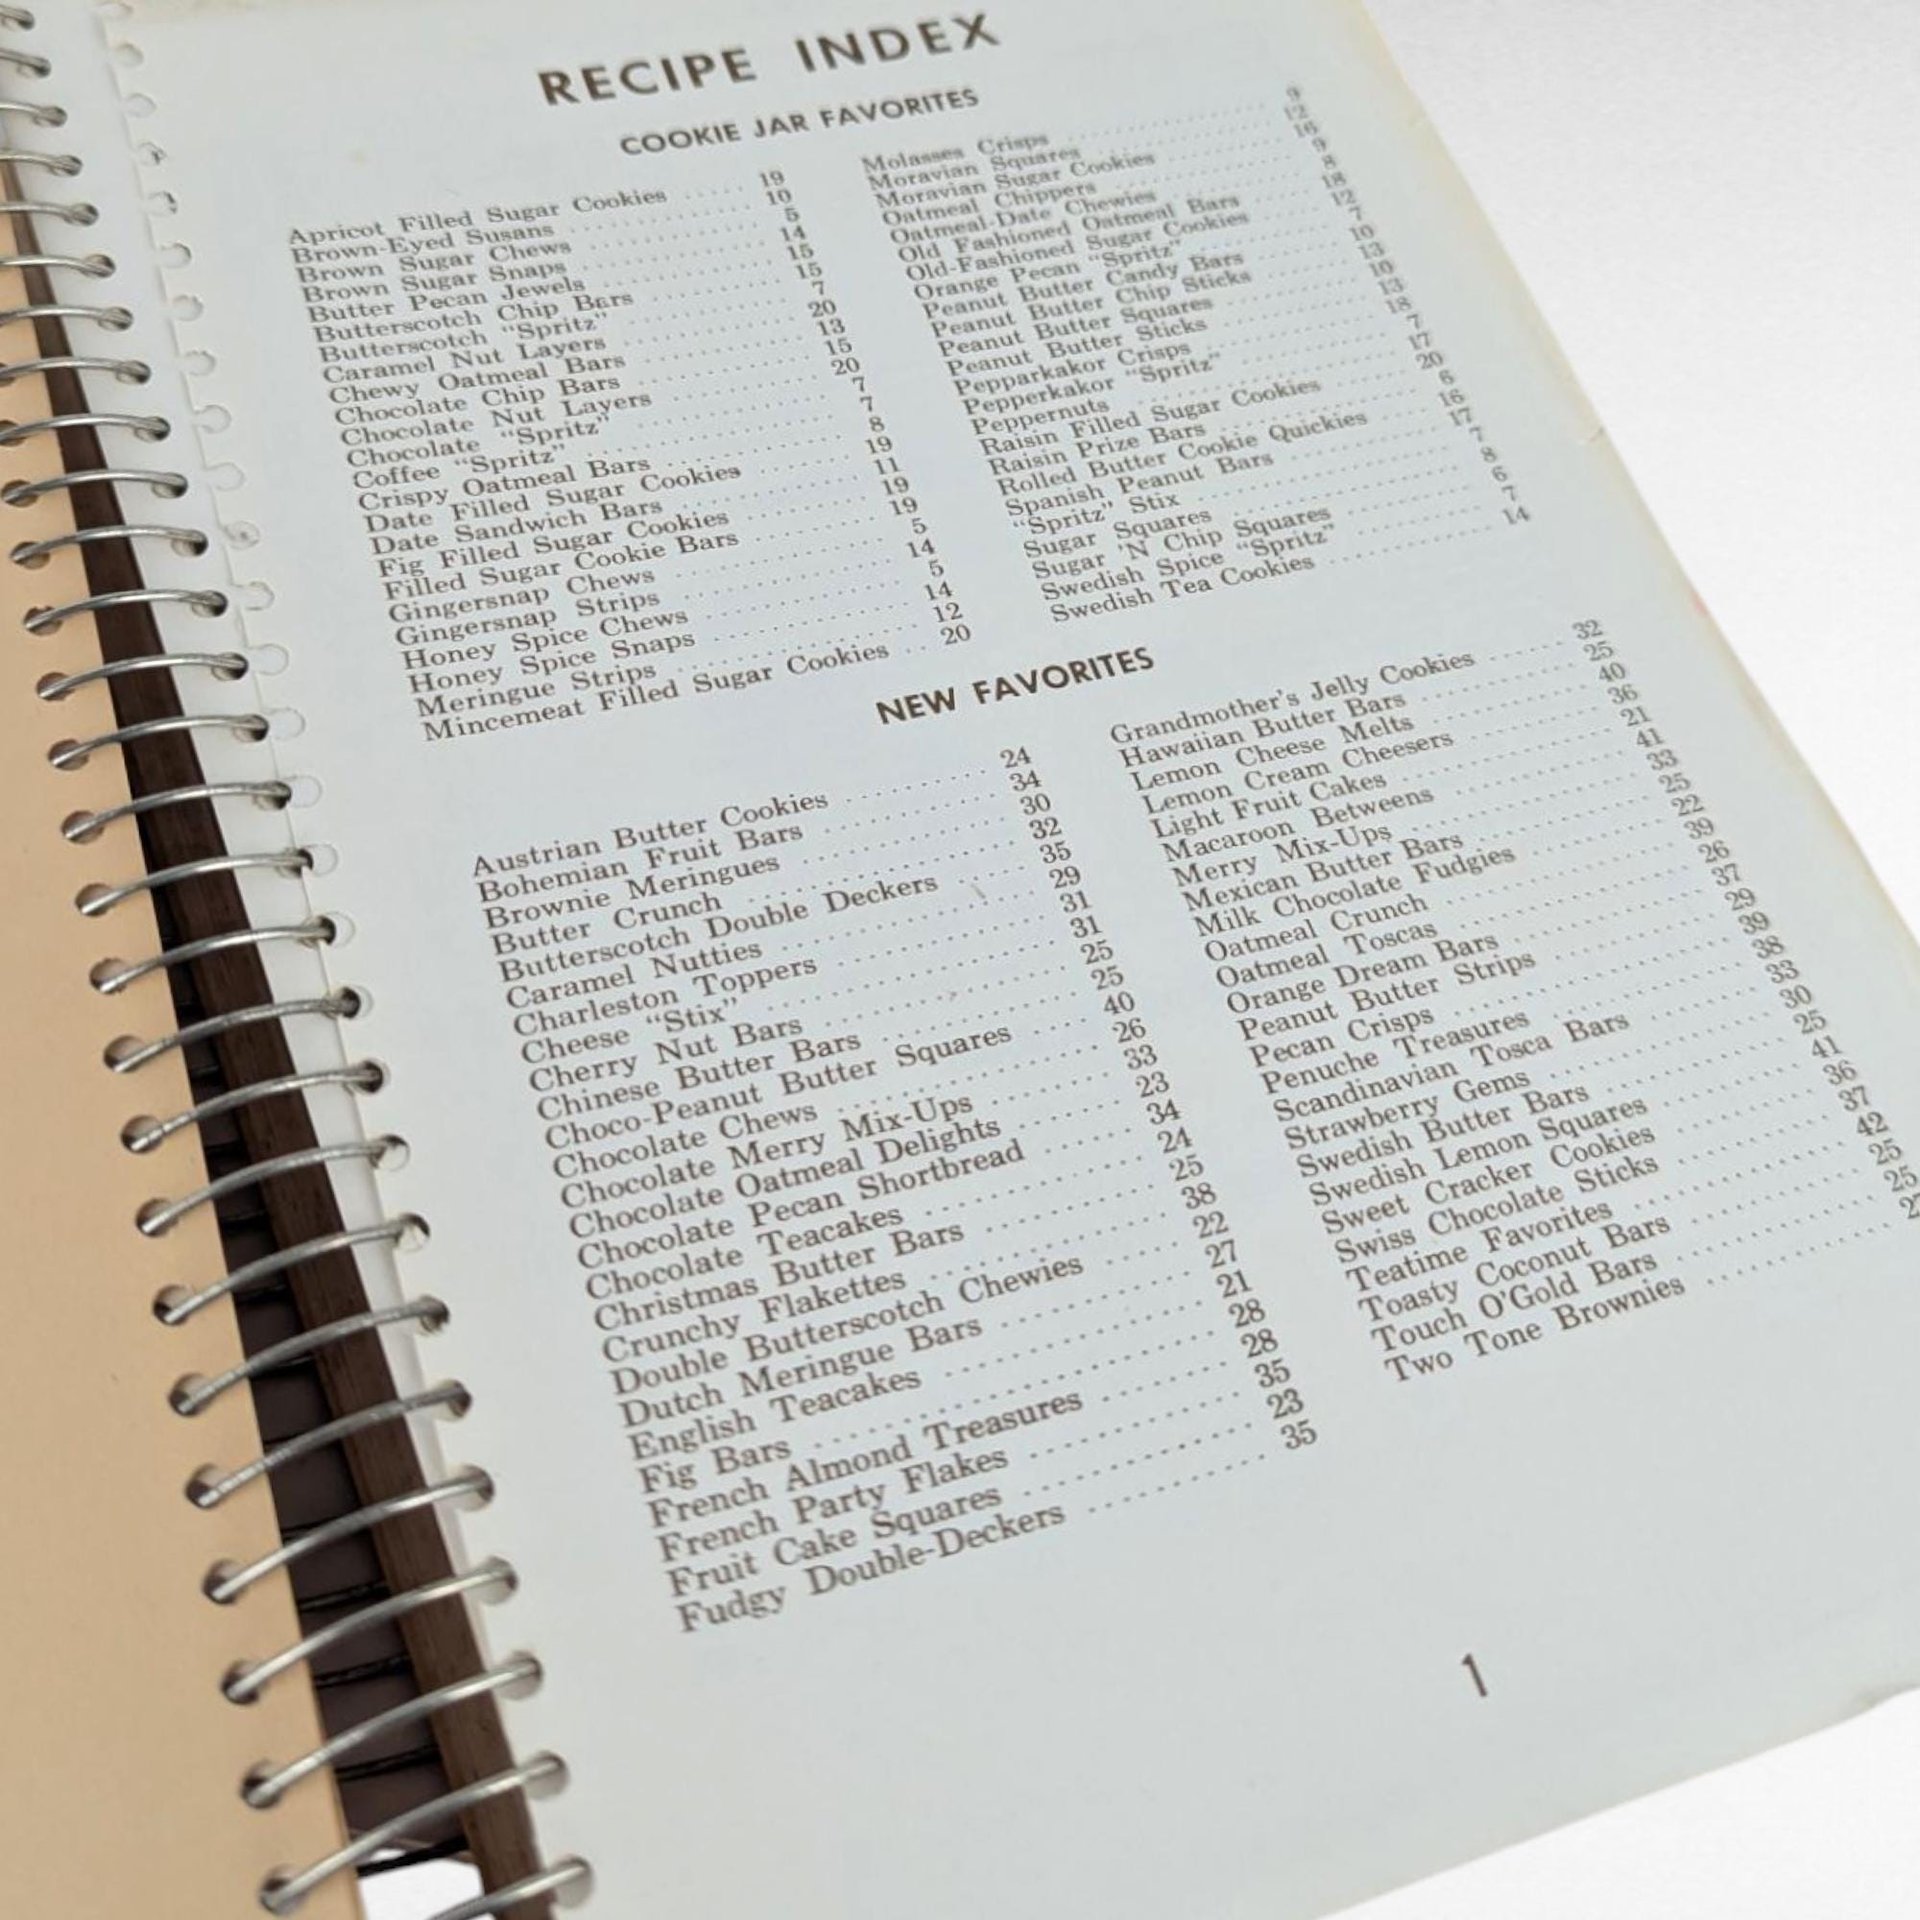 RECIPE INDEX
COOKIE JAR FAVORITES
Apricot Filled Sugar Cookies ..... 19
Brown-Eyed Susans ..... 10
Brown Sugar Chews ..... 5
Brown Sugar Snaps ..... 14
Butter Pecan Jewels ..... 15
Butterscotch Chip Bars ..... 15
Butterscotch "Spritz" ..... 7
Caramel Nut Layers ..... 20
Chewy Oatmeal Bars ..... 13
Chocolate Chip Bars ..... 15
Chocolate Nut Layers ..... 20
Chocolate "Spritz" ..... 7
Coffee "Spritz" ..... 7
Crispy Oatmeal Bars ..... 8
Date Filled Sugar Cookies ..... 19
Date Sandwich Bars ..... 11
Fig Filled Sugar Cookies ..... 19
Filled Sugar Cookie Bars ..... 19
Gingersnap Chews ..... 5
Gingersnap Strips ..... 14
Honey Spice Chews ..... 5
Honey Spice Snaps ..... 14
Meringue Strips ..... 12
Mincemeat Filled Sugar Cookies .. 20
Molasses Crisps ..... 9
Moravian Squares ..... 12
Moravian Sugar Cookies ..... 16
Oatmeal Chippers ..... 9
Oatmeal-Date Chewies ..... 8
Old Fashioned Oatmeal Bars ..... 18
Old-Fashioned Sugar Cookies ..... 12
Orange Pecan "Spritz" ..... 7
Peanut Butter Candy Bars ..... 10
Peanut Butter Chip Sticks ..... 13
Peanut Butter Squares ..... 10
Peanut Butter Sticks ..... 13
Pepparkakor Crisps ..... 18
Pepperkakor "Spritz" ..... 7
Peppernuts ..... 17
Raisin Filled Sugar Cookies ..... 20
Raisin Prize Bars ..... 6
Rolled Butter Cookie Quickies ..... 16
Spanish Peanut Bars ..... 17
"Spritz" Stix ..... 7
Sugar Squares ..... 8
Sugar 'N Chip Squares ..... 6
Swedish Spice "Spritz" ..... 7
Swedish Tea Cookies ..... 14
NEW FAVORITES
Austrian Butter Cookies ..... 24
Bohemian Fruit Bars ..... 34
Brownie Meringues ..... 30
Butter Crunch ..... 32
Butterscotch Double Deckers ..... 35
Caramel Nutties ..... 29
Charleston Toppers ..... 31
Cheese "Stix" ..... 31
Cherry Nut Bars ..... 25
Chinese Butter Bars ..... 25
Choco-Peanut Butter Squares .... 40
Chocolate Chews ..... 26
Chocolate Merry Mix-Ups ..... 33
Chocolate Oatmeal Delights ..... 23
Chocolate Pecan Shortbread ..... 34
Chocolate Teacakes ..... 24
Christmas Butter Bars ..... 25
Crunchy Flakettes ..... 38
Double Butterscotch Chewies ..... 22
Dutch Meringue Bars ..... 27
English Teacakes ..... 21
Fig Bars ..... 28
French Almond Treasures ..... 28
French Party Flakes ..... 35
Fruit Cake Squares ..... 23
Fudgy Double-Deckers ..... 35
Grandmother's Jelly Cookies ..... 32
Hawaiian Butter Bars ..... 25
Lemon Cheese Melts ..... 40
Lemon Cream Cheesers ..... 36
Light Fruit Cakes ..... 21
Macaroon Betweens ..... 41
Merry Mix-Ups ..... 33
Mexican Butter Bars ..... 25
Milk Chocolate Fudgies ..... 22
Oatmeal Crunch ..... 39
Oatmeal Toscas ..... 26
Orange Dream Bars ..... 37
Peanut Butter Strips ..... 29
Pecan Crisps ..... 39
Penuche Treasures ..... 38
Scandinavian Tosca Bars ..... 33
Strawberry Gems ..... 30
Swedish Butter Bars ..... 25
Swedish Lemon Squares ..... 41
Sweet Cracker Cookies ..... 36
Swiss Chocolate Sticks ..... 37
Teatime Favorites ..... 42
Toasty Coconut Bars ..... 25
Touch O'Gold Bars ..... 25
Two Tone Brownies .....
1